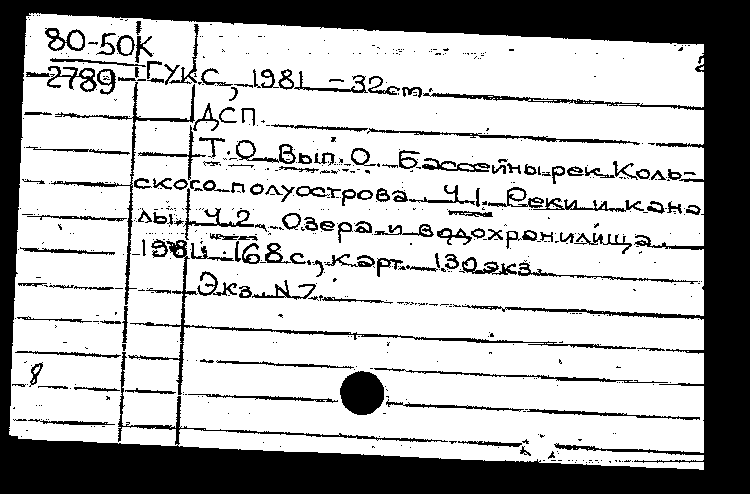 80-50К
2789 ГУКС, 1981 - 32 см.
ДСП.
Т.0 Вып.0. Бассейны рек Коль-
ского полуострова. Ч.1. Реки и кана
лы. Ч.2. Озера и водохранилища.
1981. 168 с., карт. 130 экз.
Экз. N 7.
8